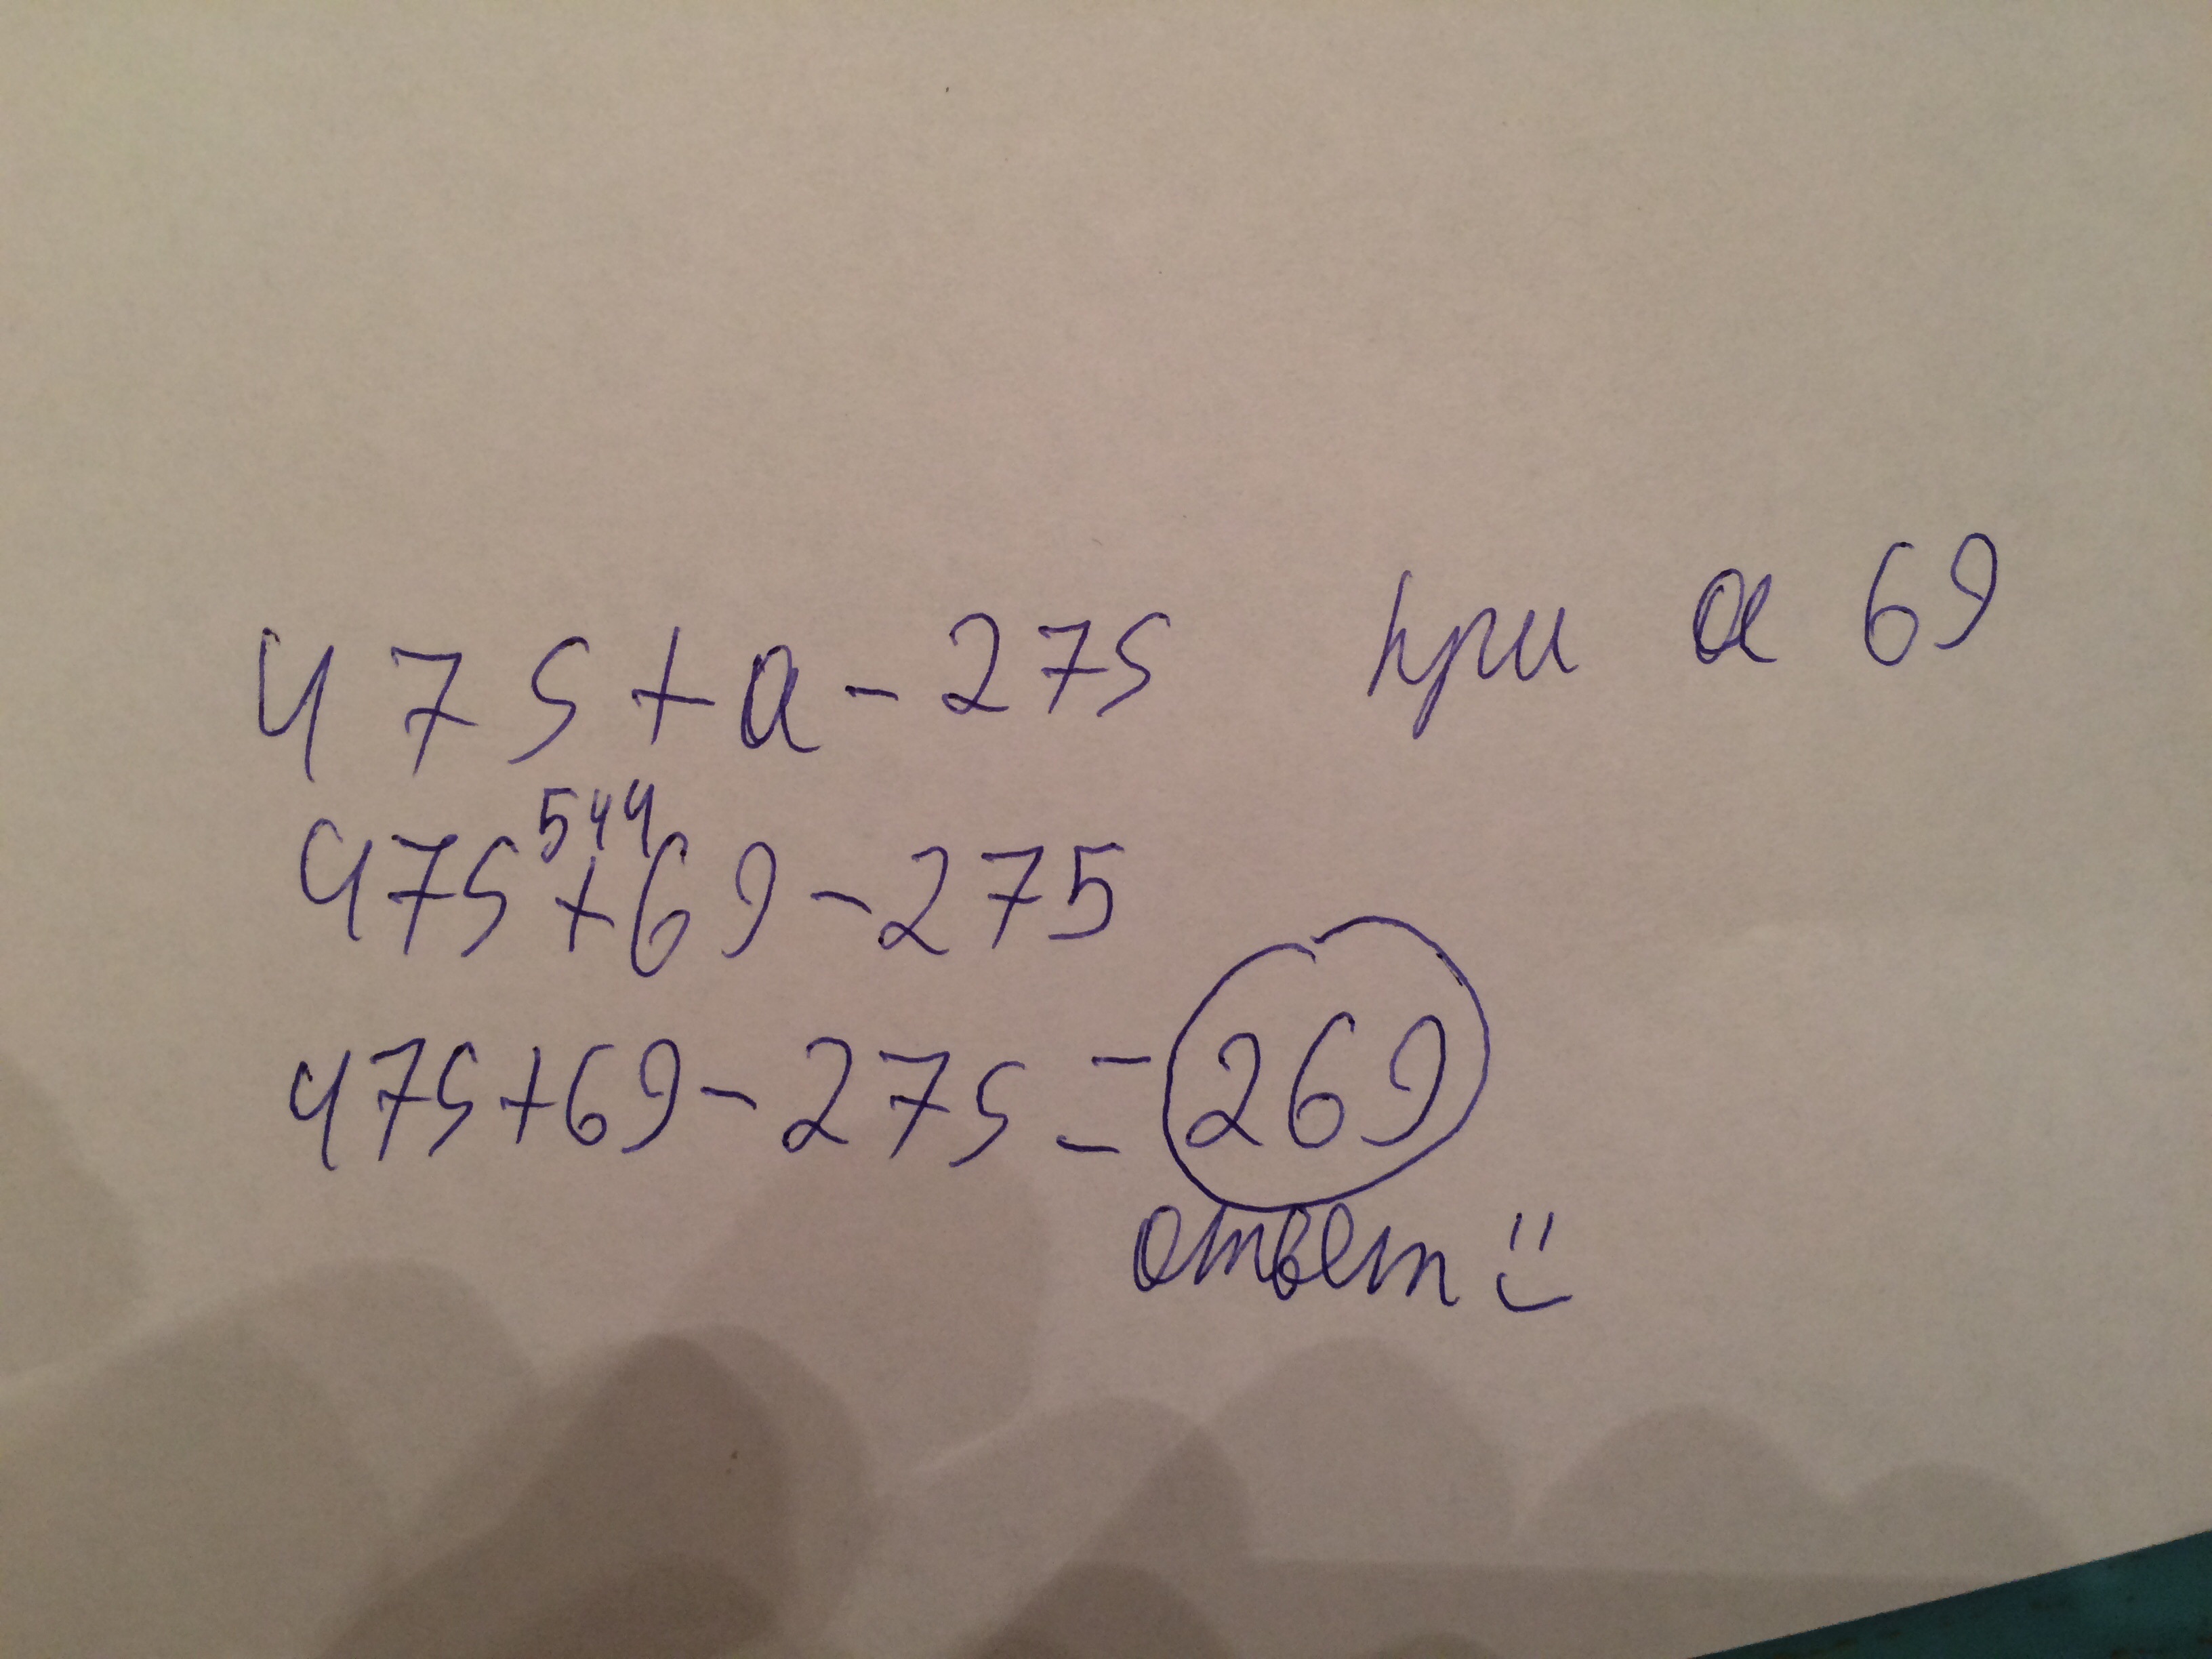 475+a-275 при a 69
544
475+69-275
475+69-275=269
ответ :)